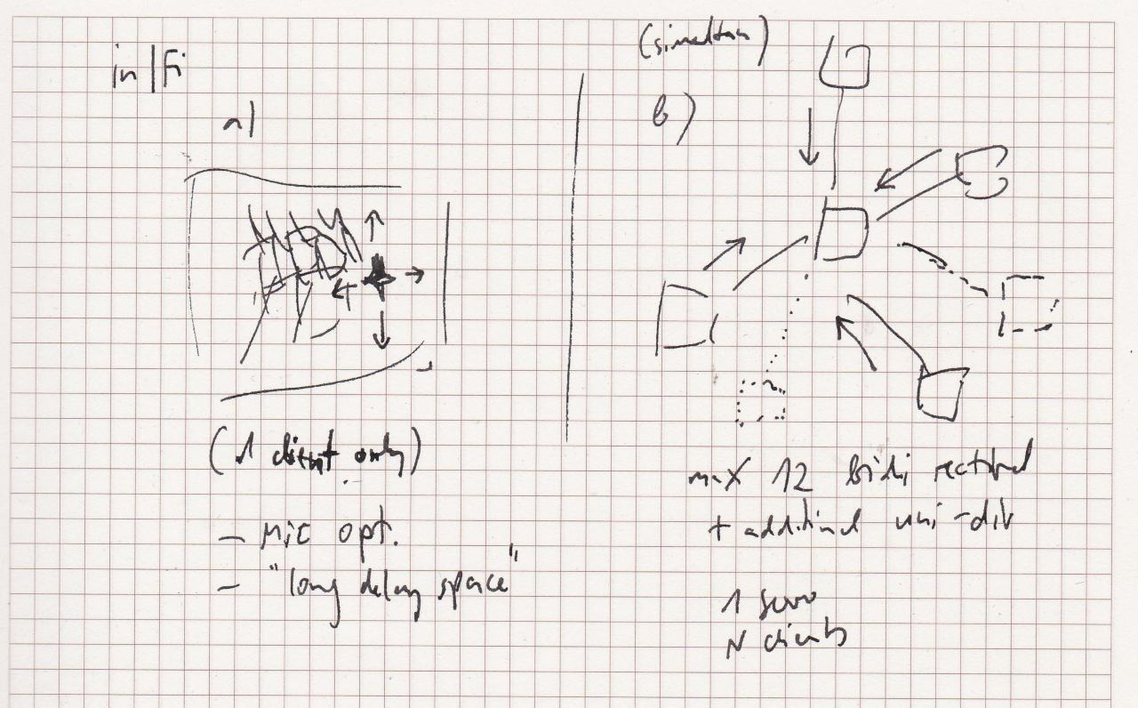 in|Fi
a)
(1 client only)
- Mic opt.
- "long delay space"
(simultan)
b)
max 12 bidirectional
+ additional uni-dir
1 server
N clients